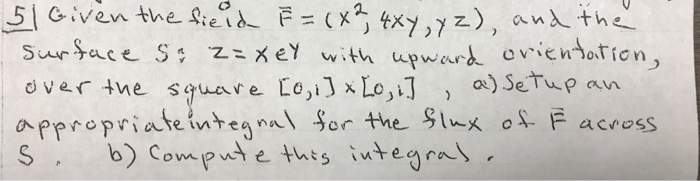 5| Given the field F̄ = (x², 4xy, yz), and the
surface S: z = xeʸ with upward orientation,
over the square [0,1] x [0,1] , a) Set up an
appropriate integral for the flux of F̄ across
S. b) Compute this integral.